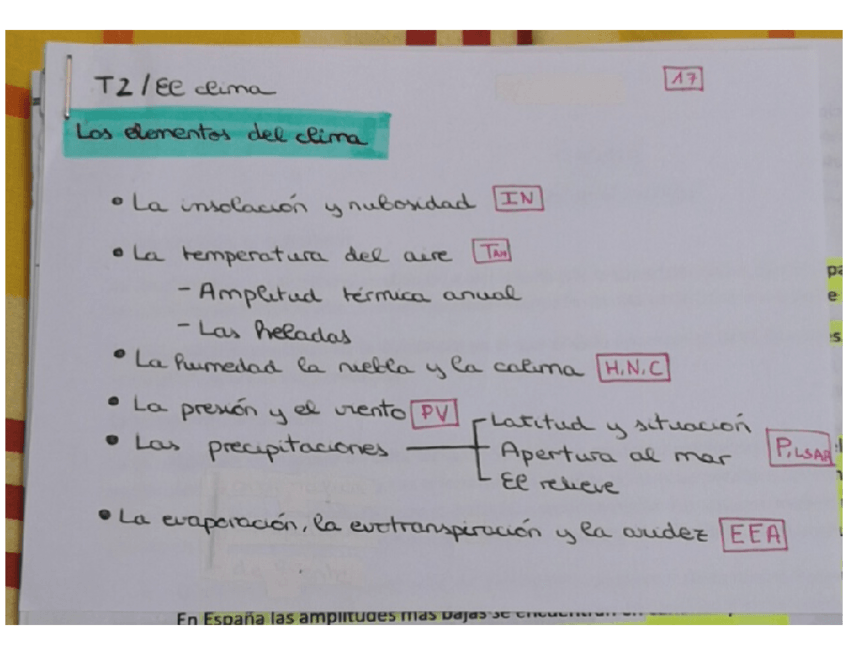 T2/El clima
17
Los elementos del clima
• La insolación y nubosidad IN
• La temperatura del aire
- Amplitud térmica anual
- Las heladas
• La humedad la niebla y la calima H.N.C
• La presión y el viento PV
• Las precipitaciones
Latitud y situación
Apertura al mar
El relieve
P,LSAR
• La evaporación, la evotranspiración y la aridez EEA
En España las amplitudes más bajas se encuentran en